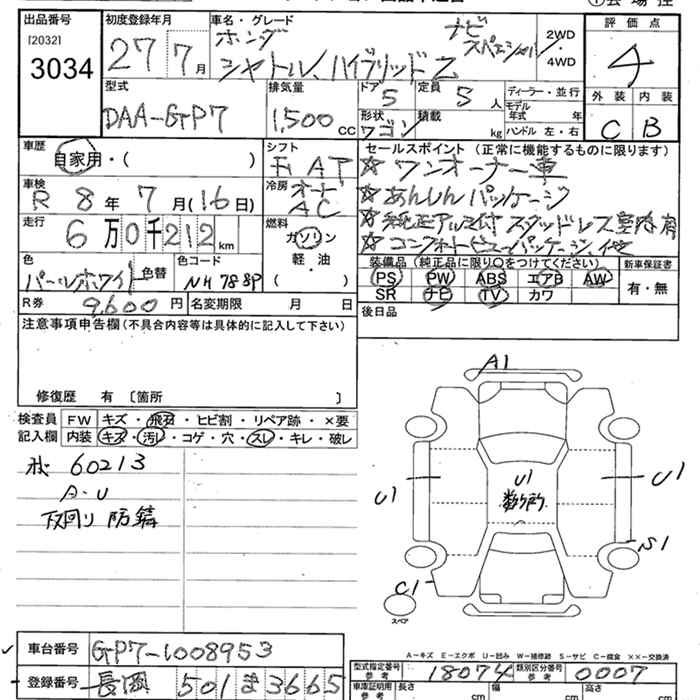 出品番号
[2032]
3034
初度登録年月
27 7月
車名・グレード
ホンダ
ナビ
スペシャル
シャトル、ハイブリッドZ
2WD
・
4WD
評価点
4
外装 内装
C B
型式
DAA-GP7
排気量
1,500 CC
ドア
5
定員
5 人
形状
ワゴン
積載
kg
ディーラー・並行
モデル
年式 年
ハンドル 左・右
車歴
自家用・( )
シフト
FI AT
冷房
オート
AC
セールスポイント (正常に機能するものに限ります)
☆ ワンオーナー車
☆ あんしんパッケージ
☆ 純正アルミ付 スタッドレス 有
☆ コンフォートビューパッケージ 他
車検
R 8年 7月(16日)
走行
6万0千212km
燃料
ガソリン
軽・油
( )
色
パールホワイト
色替
色コード
NH788P
R券 9,600円
名変期限 月 日
装備品 (純正品に限り○をつけてください)
PS PW ABS エアB AW
SR ナビ TV カワ
新車保証書
有・無
後日品
注意事項申告欄 (不具合内容等は具体的に記入して下さい)
修復歴 有 〔箇所 〕
検査員
記入欄
FW キズ・飛石・ヒビ割・リペア跡・×要
内装 キズ・汚レ・コゲ・穴・スレ・キレ・破レ
60213
A・U
下回り 防錆
A1
U1
U1
数ヶ所
U1
S1
C1
スペア
A-キズ E-エクボ U-凹み W-補修跡 S-サビ C-腐食 ××-交換済
車台番号 GP7-1008953
登録番号 長岡 501 ま 3665
型式指定番号
参考
18074
類別区分番号
参考
0007
車庫証明用
参考
長さ cm
幅 cm
高さ cm